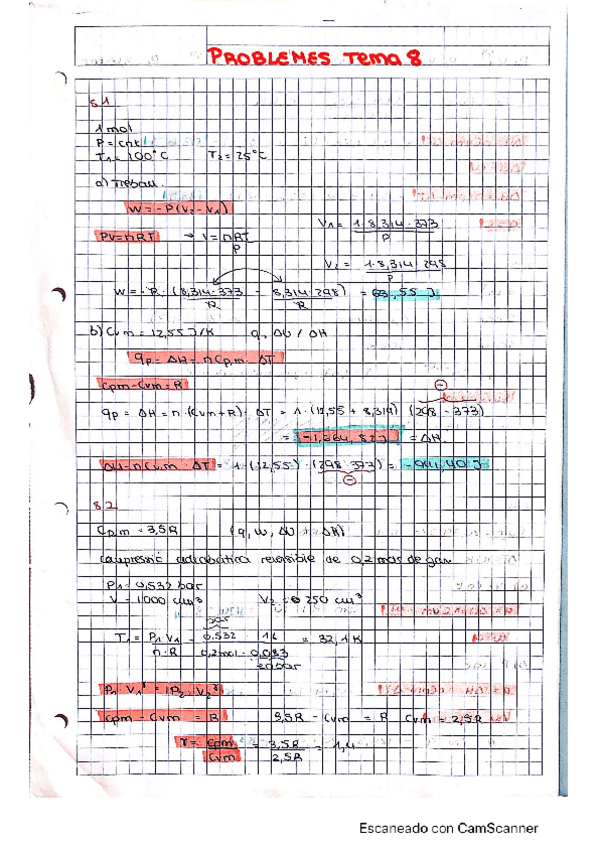 PROBLEMES TEMA 8
8.1
1 mol
P = cnt
T1 = 100°C T2 = 25°C
a) Treball
W = -P(V2 - V1)
V1 = 1·8,314·373 / P
PV = nRT → V = nRT / P
V2 = 1·8,314·298 / P
W = - P · (8,314·373 / P - 8,314·298 / P) = 55 J
b) Cvm = 12,55 J/K q, ΔU / ΔH
qp = ΔH = nCp,m · ΔT
Cpm - Cvm = R
qp = ΔH = n·(Cvm + R)·ΔT = 1·(12,55 + 8,314) (298 - 373)
= ΔH
ΔU = nCv,m · ΔT = 1·(12,55)·(298-373) = -941,40 J
8.2
Cp,m = 3,5R (q, W, ΔU i ΔH)
compressió adiabàtica reversible de 0,2 mols de gas
P1 = 0,532 bar
V = 1000 cm³ V2 = 250 cm³
bar
T1 = P1 V1 / n·R = 0,532 · 1L / 0,2mol · 0,083 = 32,1 K
en bar
P1 · V1^γ = P2 · V2^γ
Cpm - Cvm = R 3,5R - Cvm = R Cvm = 2,5R
γ = Cpm / Cvm = 3,5R / 2,5R = 1,4
Escaneado con CamScanner